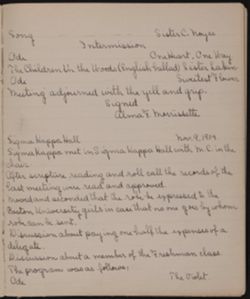 Song Sister C. Noyes
Intermission
Ode One Heart, One Way
The Children in the Woods (English Ballad) Sister
Ode Sweetest Flower
Meeting adjourned with the yell and grip.
Signed
Alma F. Morrissette
Sigma Kappa Hall Nov. 9,
Sigma Kappa met in Sigma Kappa Hall with M. C. in the
chair.
After scripture reading and roll call the records of the
last meeting were read and approved.
Moved and seconded that the be expressed to the
Boston University girls in case that no one goes by whom
can be sent.
Discussion about paying one half the expenses of a
delegate.
Discussion about a member of the Freshman class.
The program was as follows:
Ode The Violet